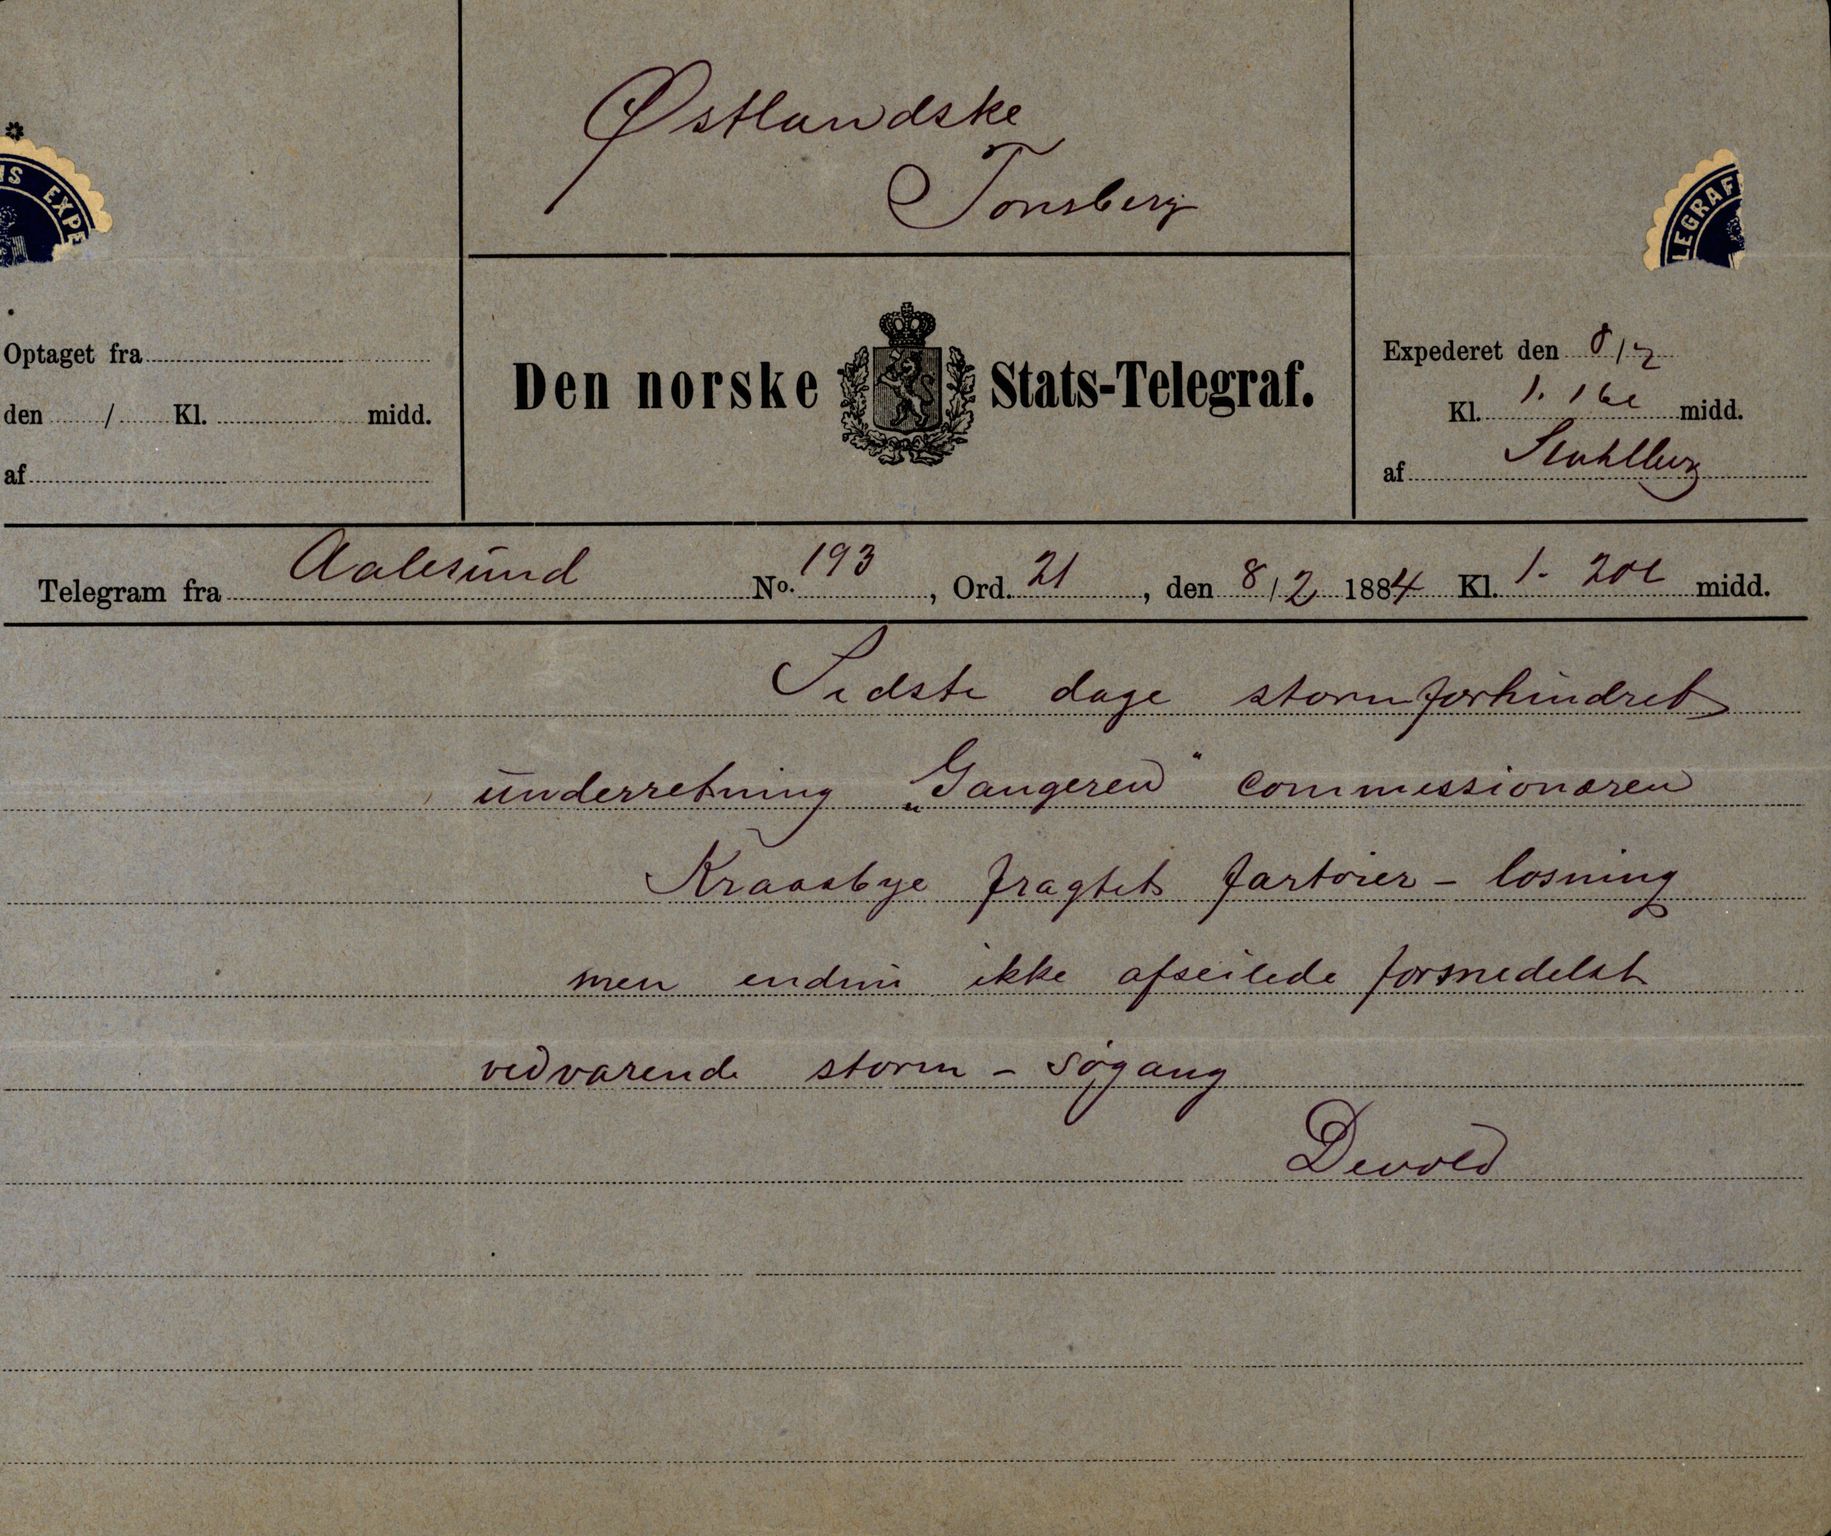 Østlandske
Tonsberg
NS EXPE
LEGRAF
Optaget fra
den / Kl. midd.
af
Den norske Stats-Telegraf.
Expederet den 8/2
Kl. 1. 16e midd.
af
Telegram fra Aalesund No. 193, Ord. 21, den 8/2 1884 Kl. 1. 20e midd.
Sidste dage stormforhindret
underretning „Gangeren" commissionæren
Kraasbye fragtet fartøier - losning
men endnu ikke afseilede formedelst
vedvarende storm - søgang
Devold